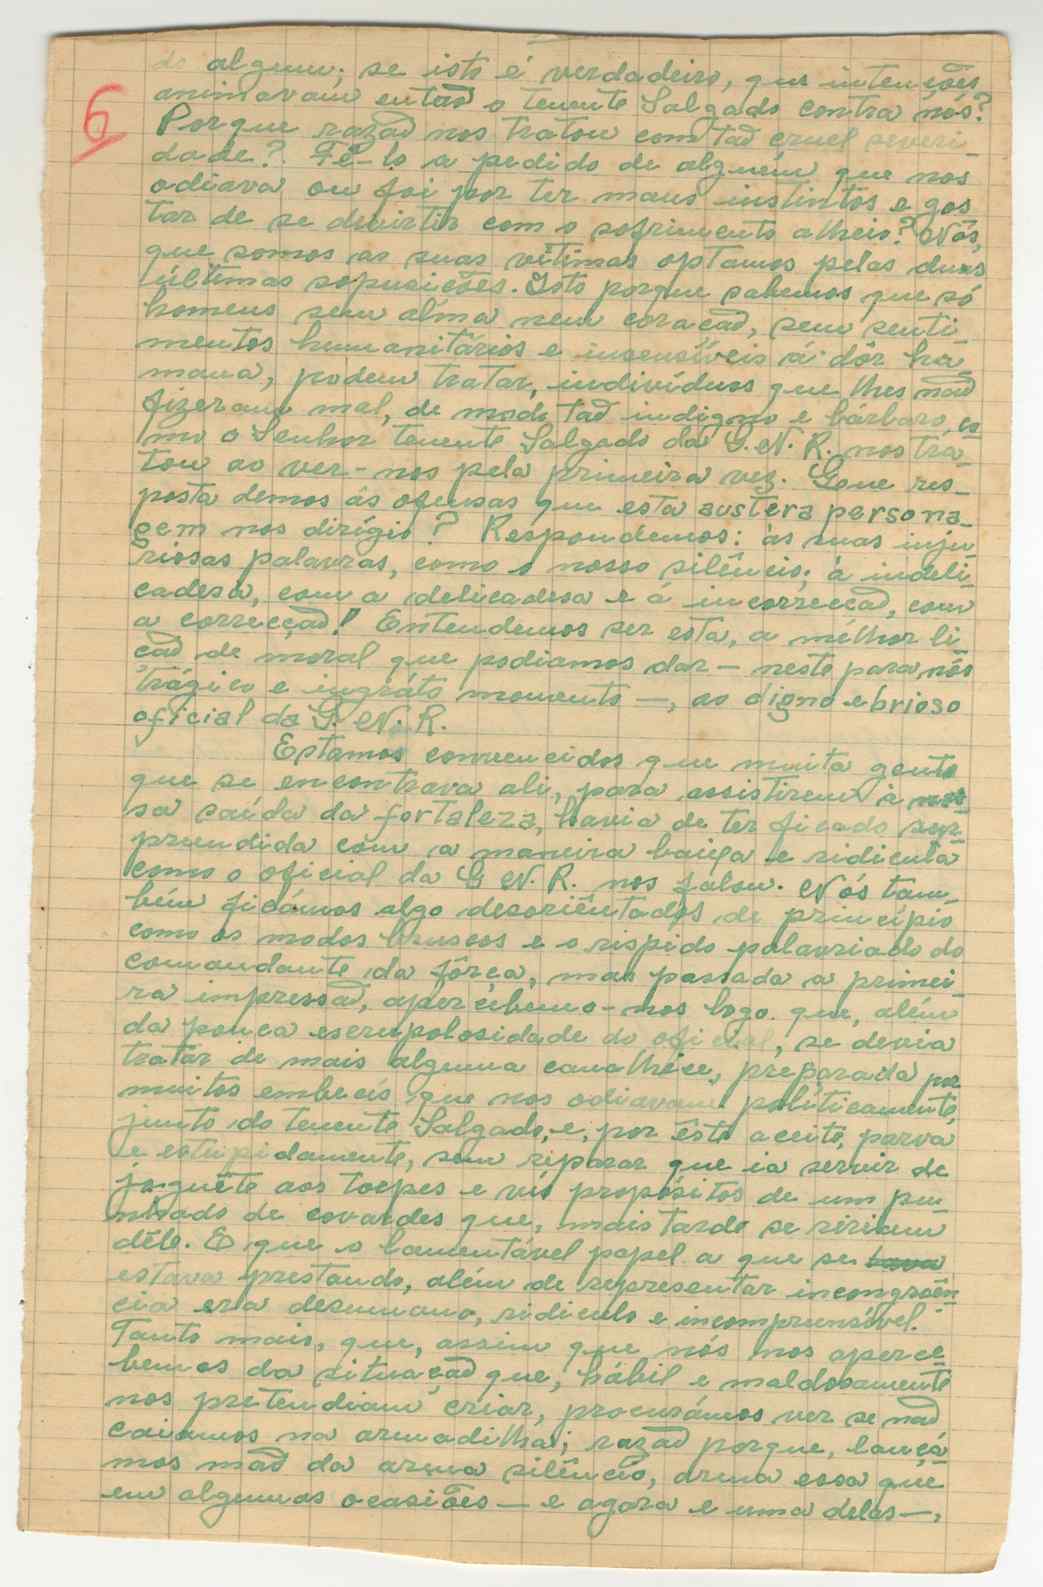 6
do algum; se isto é verdadeiro, que intenções
animavam então o tenente Salgado contra nós?
Porque razão nos tratou com tão cruel severi-
dade? Fê-lo a pedido de alguém que nos
odiava ou foi por ter maus instintos e gos
tar de se divirtir com o sofrimento alheio? Nós,
que somos as suas vítimas optamos pelas duas
últimas soposições. Isto porque sabemos que só
homens sem alma nem coração, sem senti
mentos humanitários e insensíveis á dôr hu-
mana, podem tratar, indivíduos que lhes não
fizeram mal, de modo tão indigno e bárbaro, co-
mo o Senhor tenente Salgado da G. N. R. nos tra-
tou ao ver-nos pela primeira vez. Que res-
posta demos ás ofensas que esta austéra persona-
gem nos dirígio? Respondemos: às suas inju-
riosas palavras, como o nosso silêncio; á indeli-
cadesa, com a delicadesa e á incorrecção, com
a correcção! Entendemos ser esta, a mélhor li
ção de moral que podiamos dar — neste para nós
trágico e ingráto momento —, ao digno e brioso
oficial da G. N. R.
Estamos convencidos que muita gente
que se encontrava ali, para assistirem à nos-
sa caída da fortaleza, havia de ter ficado sur-
preendida com a maneira baixa e ridicula
como o oficial da G N. R. nos fálou. Nós tam-
bém ficámos algo desoriêntados de princípio
como os modos bruscos e o rispido palavriado do
comandante da fôrça, mas passada a primei-
ra impressão, apercebemo-nos logo que, além
da pouca escrupolosidade do oficial, se devia
tratar de mais alguma canalhice, preparada por
muitos embecis que nos odiavam políticamente,
junto do tenente Salgado, e, por êste aceite, parva
e estupidamente, sem reparar que ia servir de
joguête aos torpes e vis propósitos de um pu-
nhado de covardes que, mais tarde se ririam
dêle. E que o lamentável papel a que se
estava prestando, além de representar incongruên
cia era desumano, ridiculo e incomprensível!
Tanto mais, que, assim que nós nos aperce-
bemos da situação que, hábil e maldosamente
nos pretendiam criar, procurámos ver se não
caíamos na armadilha; razão porque, lançá-
mos mão da arma silêncio, arma essa que
em algumas ocasiões — e agora e uma delas —,